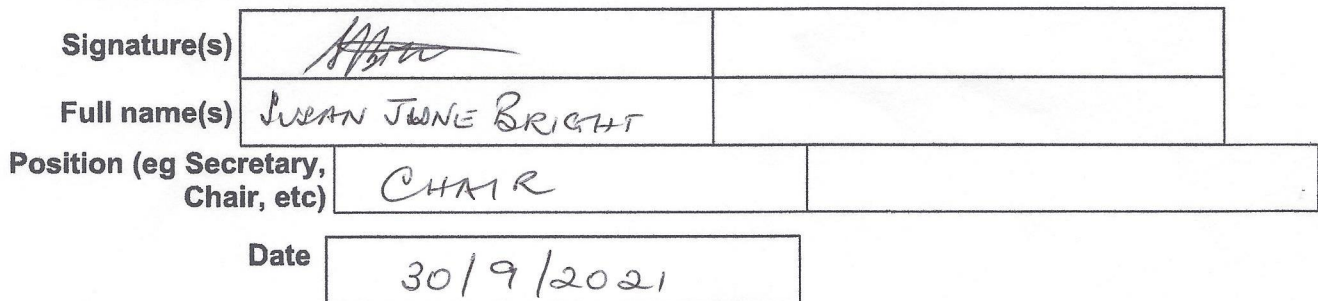 Signature(s)
Full name(s) SUSAN JUNE BRIGHT
Position (eg Secretary,
Chair, etc) CHAIR
Date 30/9/2021